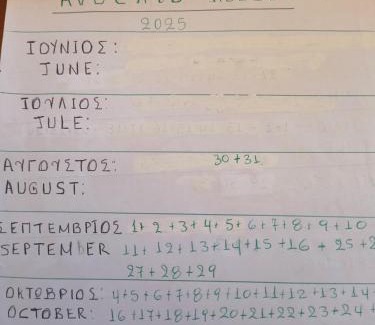 2025
ΙΟΥΝΙΟΣ:
JUNE:
ΙΟΥΛΙΟΣ:
JULE:
ΑΥΓΟΥΣΤΟΣ: 30+31
AUGUST:
ΣΕΠΤΕΜΒΡΙΟΣ 1+2+3+4+5+6+7+8+9+10
SEPTEMBER 11+12+13+14+15+16+25+
27+28+29
ΟΚΤΩΒΡΙΟΣ: 4+5+6+7+8+9+10+11+12+13+14
OCTOBER: 16+17+18+19+20+21+22+23+24+